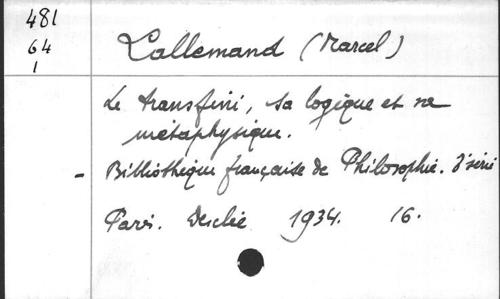 481
64
1
Lallemand (Marcel)
Le transfini, sa logique et sa
métaphysique.
- Bibliothèque française de Philosophie. 3e série
Paris. Desclée 1934. 16.